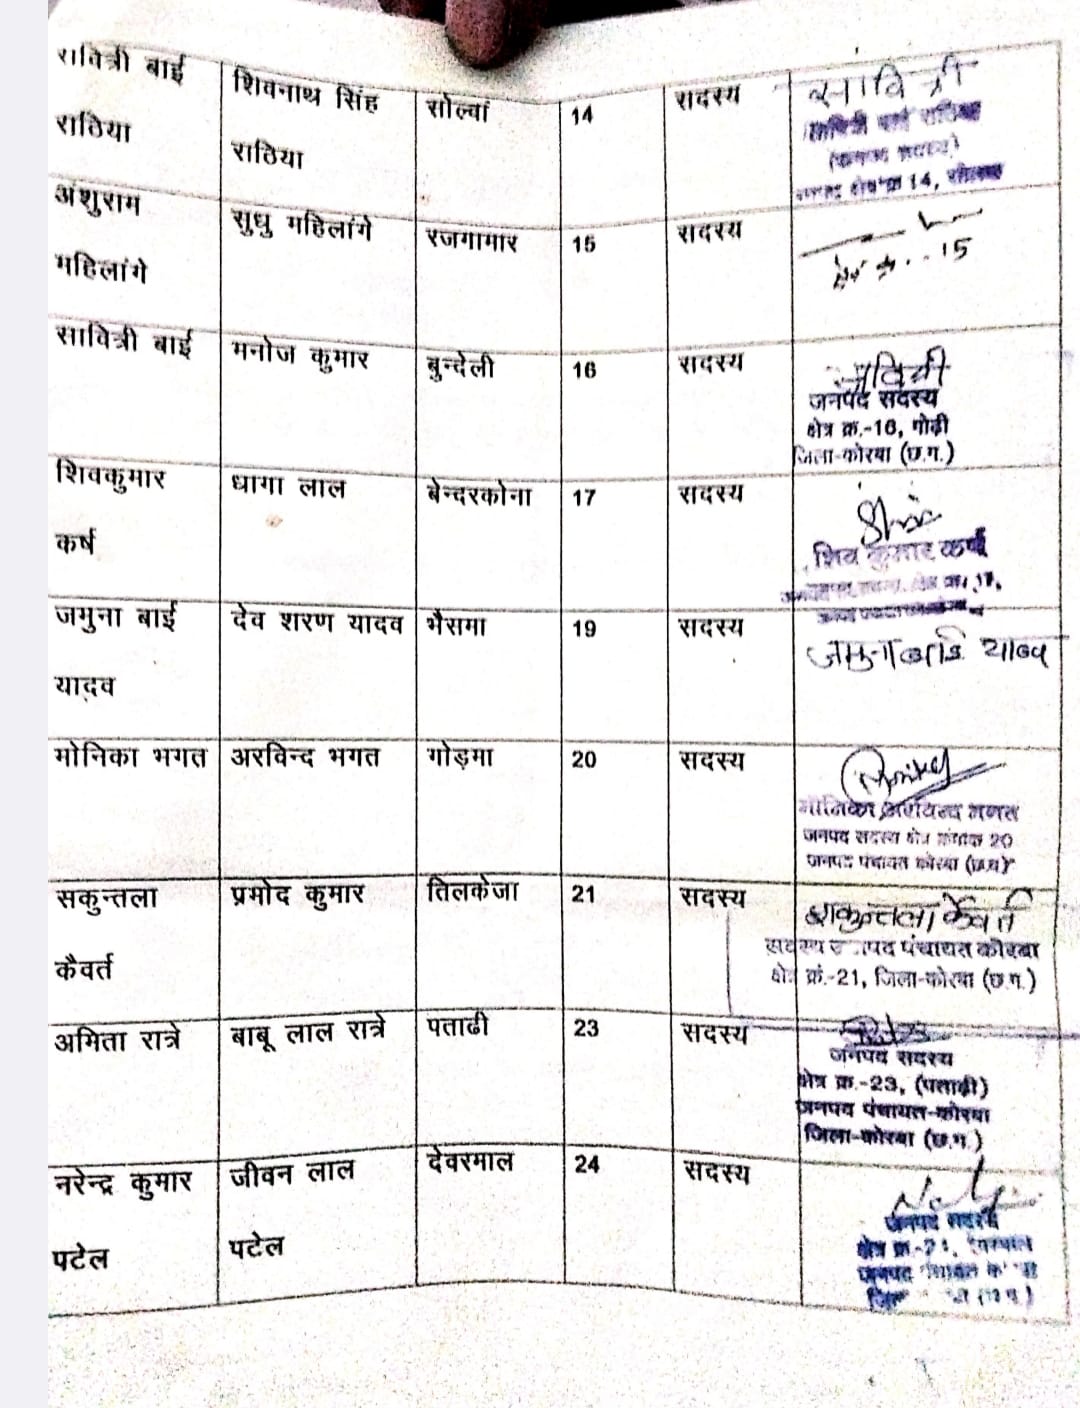 सावित्री बाई राठिया शिवनाथ सिंह राठिया सोल्वां 14 सदस्य सावित्री
सावित्री बाई राठिया
14,
अंशुराम महिलांगे सुधु महिलांगे रजगामार 15 सदस्य
15
सावित्री बाई मनोज कुमार बुन्देली 16 सदस्य सावित्री
जनपद सदस्य
क्षेत्र क्र.-16, गोढ़ी
जिला-कोरबा (छ.ग.)
शिवकुमार कर्ष धागा लाल बेन्दरकोना 17 सदस्य
शिव कुमार कर्ष
17,
जमुना बाई यादव देव शरण यादव भैसमा 19 सदस्य जमुना बाई यादव
मोनिका भगत अरविन्द भगत गोड़मा 20 सदस्य
मोनिका अरविन्द भगत
जनपद सदस्य क्षेत्र क्रमांक 20
जनपद पंचायत कोरबा (छ.ग)
सकुन्तला कैवर्त प्रमोद कुमार तिलकेजा 21 सदस्य शकुन्तला कैवर्त
सदस्य जनपद पंचायत कोरबा
क्षेत्र क्रं.-21, जिला-कोरबा (छ.ग.)
अमिता रात्रे बाबू लाल रात्रे पताढी 23 सदस्य
जनपद सदस्य
क्षेत्र क्र.-23, (पताढ़ी)
जनपद पंचायत-कोरबा
जिला-कोरबा (छ.ग.)
नरेन्द्र कुमार पटेल जीवन लाल पटेल देवरमाल 24 सदस्य
जनपद सदस्य
क्षेत्र क्र.
जनपद पंचायत